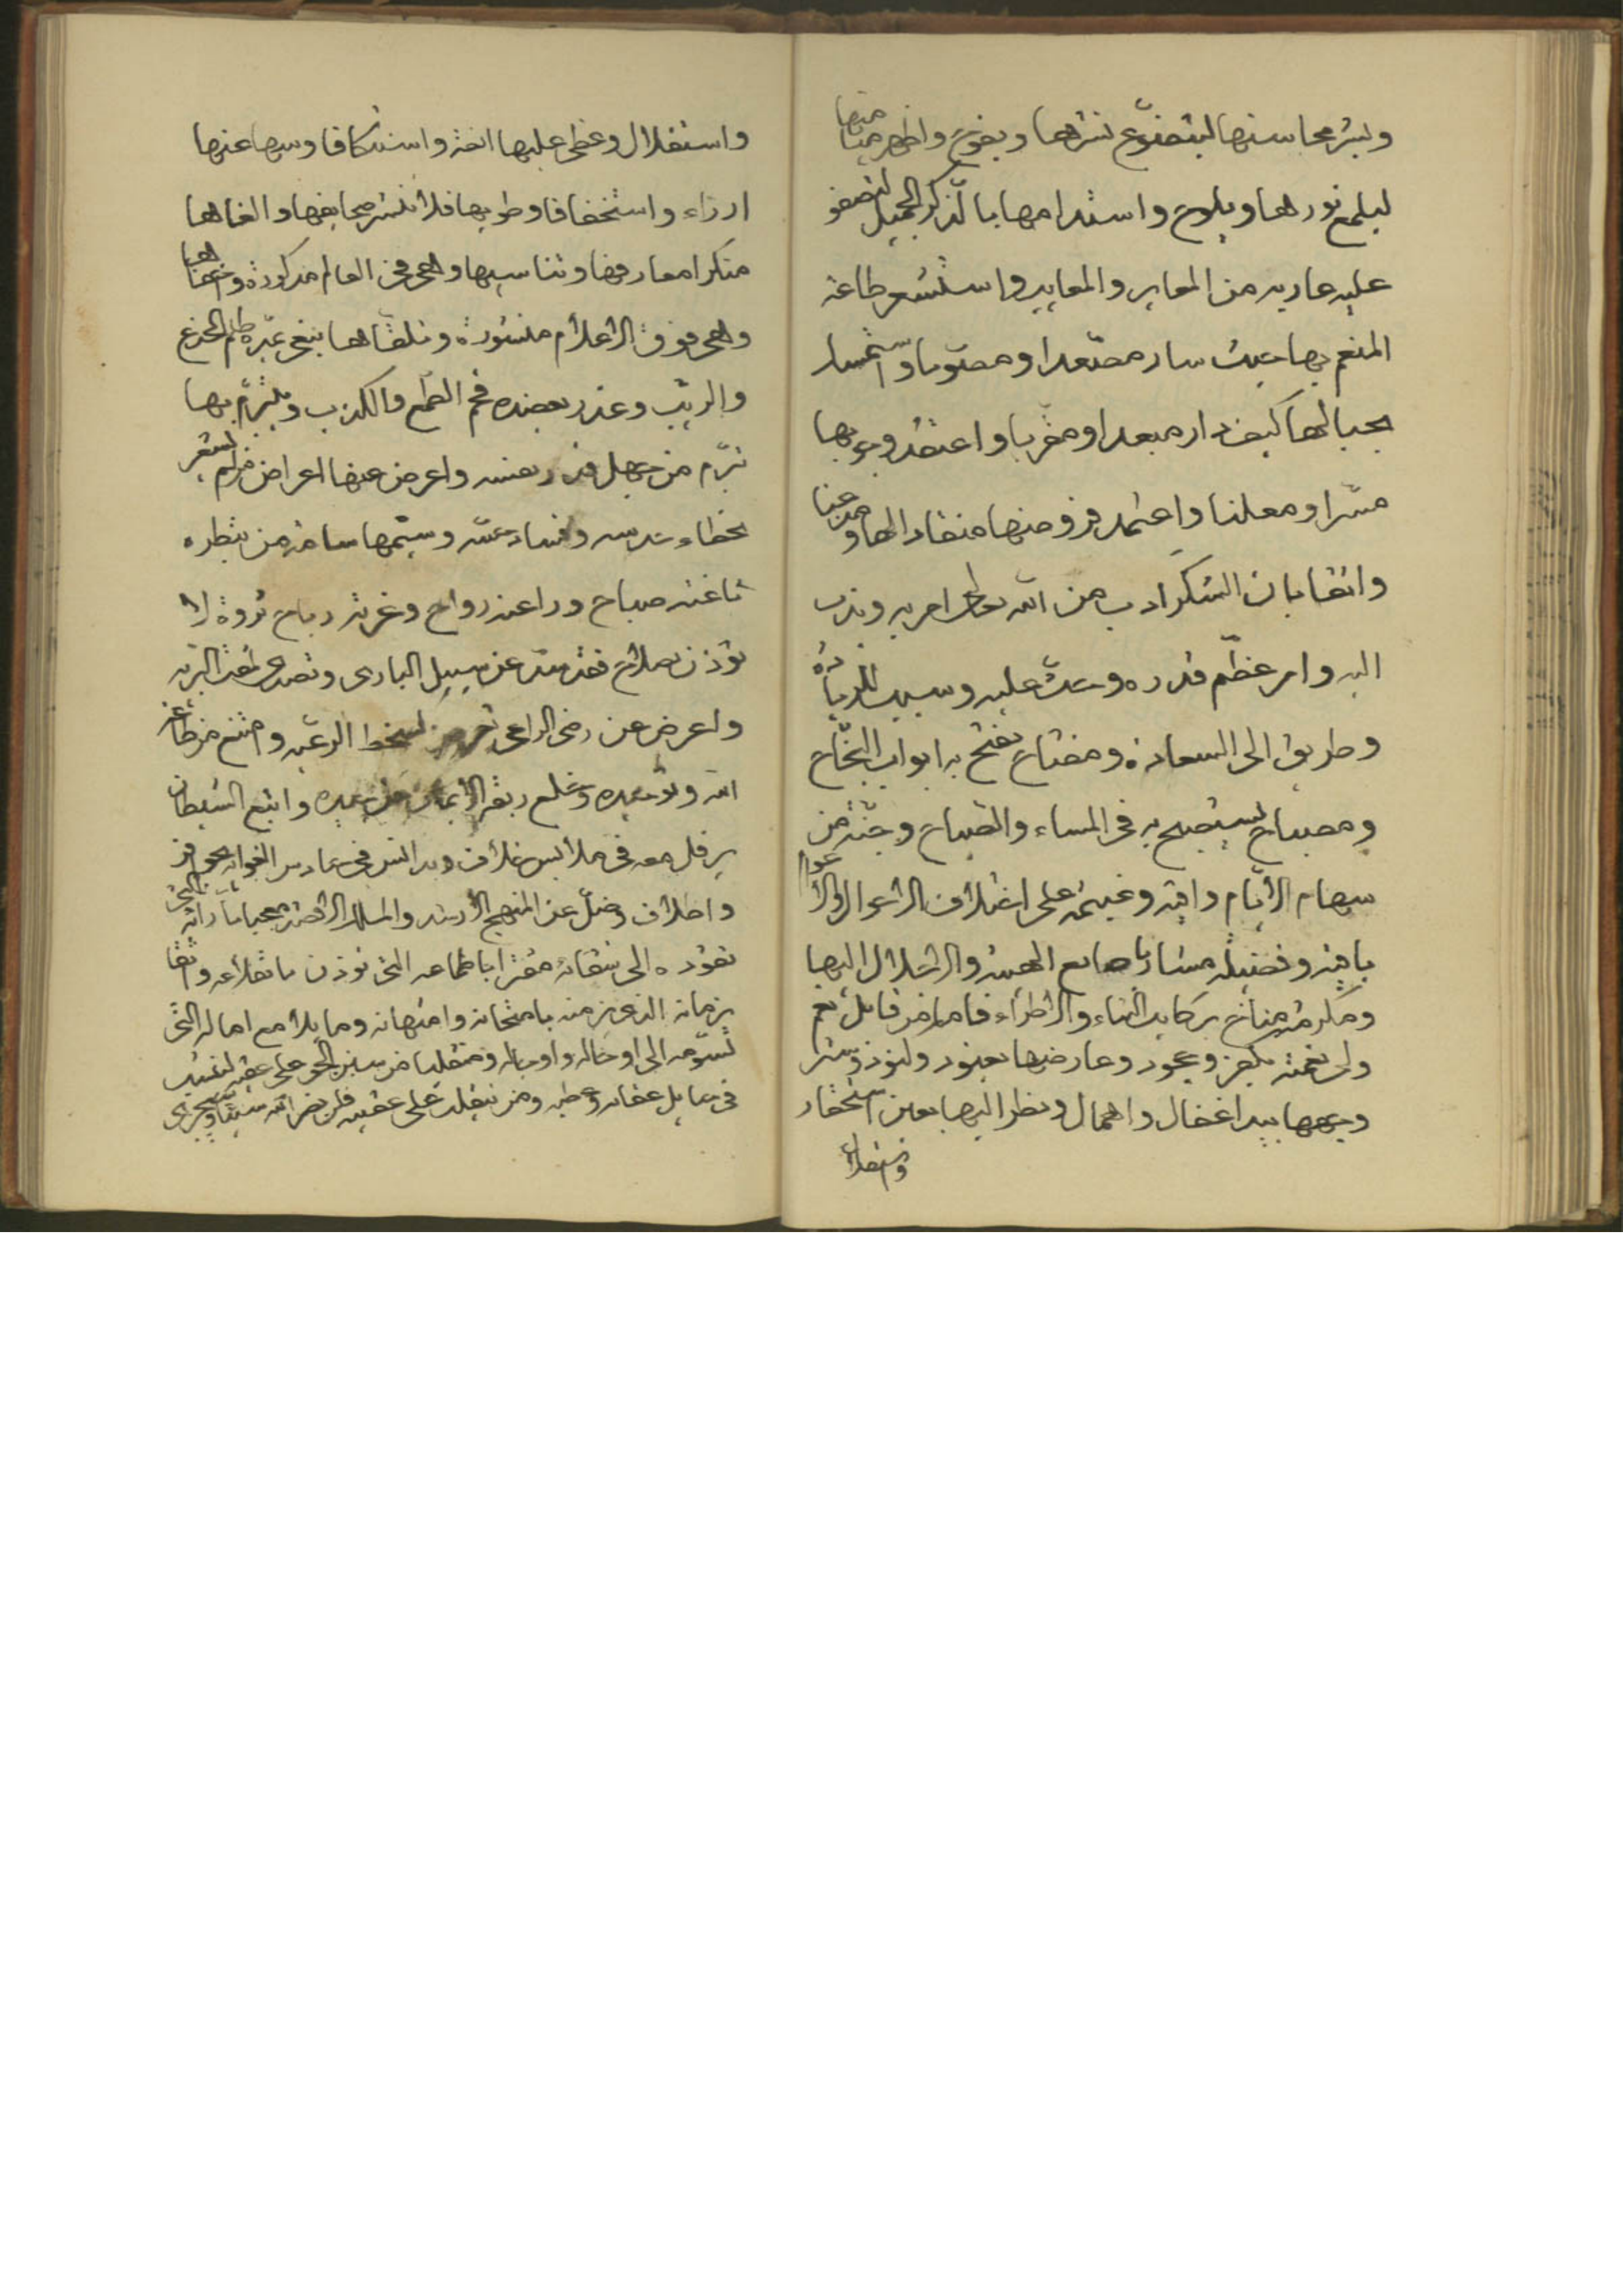 ونشر محاسنها ليتضوّع نشرها ويفوح واظهر ميامنها
ليلمع نورها ويلوح واستدامها بالذكر الجميل لتصفو
عليه عاريه من المعاير والمعايب واستشعر طاعة
المنعم بها حيث سار مصعدا ومصوبا واستمسك
بحبالها كيف دار مبعدا ومقربا واعتقد وجوبها
مسرا ومعلنا واعتمد فروضها منقادا لها ومذعنا
واثقا بان الشكر ادب من الله تعالى امر به وندب
اليه وامر عظّم قدره وحث عليه وسبب للزيادة
وطريق الى السعادة ومفتاح يفتح به ابواب النجاح
ومصباح يستصبح به في المساء والصباح وجنّة من
سهام الأيام واقية وغنيمة على اختلاف الاحوال والاعوام
باقية وفضيلة مشار باصابع الهيبة والاجلال اليها
ومكرمة مناخ ركايب الثناء والاطراء فاما من قابل نعم
ولى نعمته بكفر وجحود وعارضها بعنود وكنود وستر
وجهها بيد اغفال واهمال ونظر اليها بعين استحقار
واستقلال
واستقلال وغطى عليها انفة واستنكافا وسها عنها
ازراء واستخفافا وطويها فلا تنشر صحايفها والغاها
منكرا معارفها وتناسيها وهي في العالم مذكورة
وهي فوق الاعلام منشورة وتلقاها ببغي
والريب وغدر يعضده فم الطمع والكذب وتبرّم بها
تبرّم من جهل قدر نفسه واعرض عنها اعراض من لم يشعر
بخطاء حدسه وفساد حسّه وسئمها سامة من بطره
ثاغية صباح وراغية رواح وغرته رياح ثروة لا
تؤذن بصلاح فقد صد عن سبيل الباري وتصدى للعنة البريه
واعرض عن رضى الراعي لسخط الرعيه وامتنع من طاعة
الله وتوحيده وخلع ربقة الايمان من جيده واتبع الشيطان
يرفل معه في ملابس خلاف
واطلاق وضلّ عن المنهج الارشد والمسلك الاقصد
تقوده الى شقائه مغترا باطماعه التي تؤذن باقلاعه واثقا
بزمانه الذي يرمنه بامتحانه وامتهانه وما يلامع اماله التي
تسوّمه الى اوحاله واوجاله ومنقلبا من سنن الحق على عقبه
في حبايل عقابه وعطبه ومن ينقلب على عقبيه فلن يضر الله شيئا وسيجزى